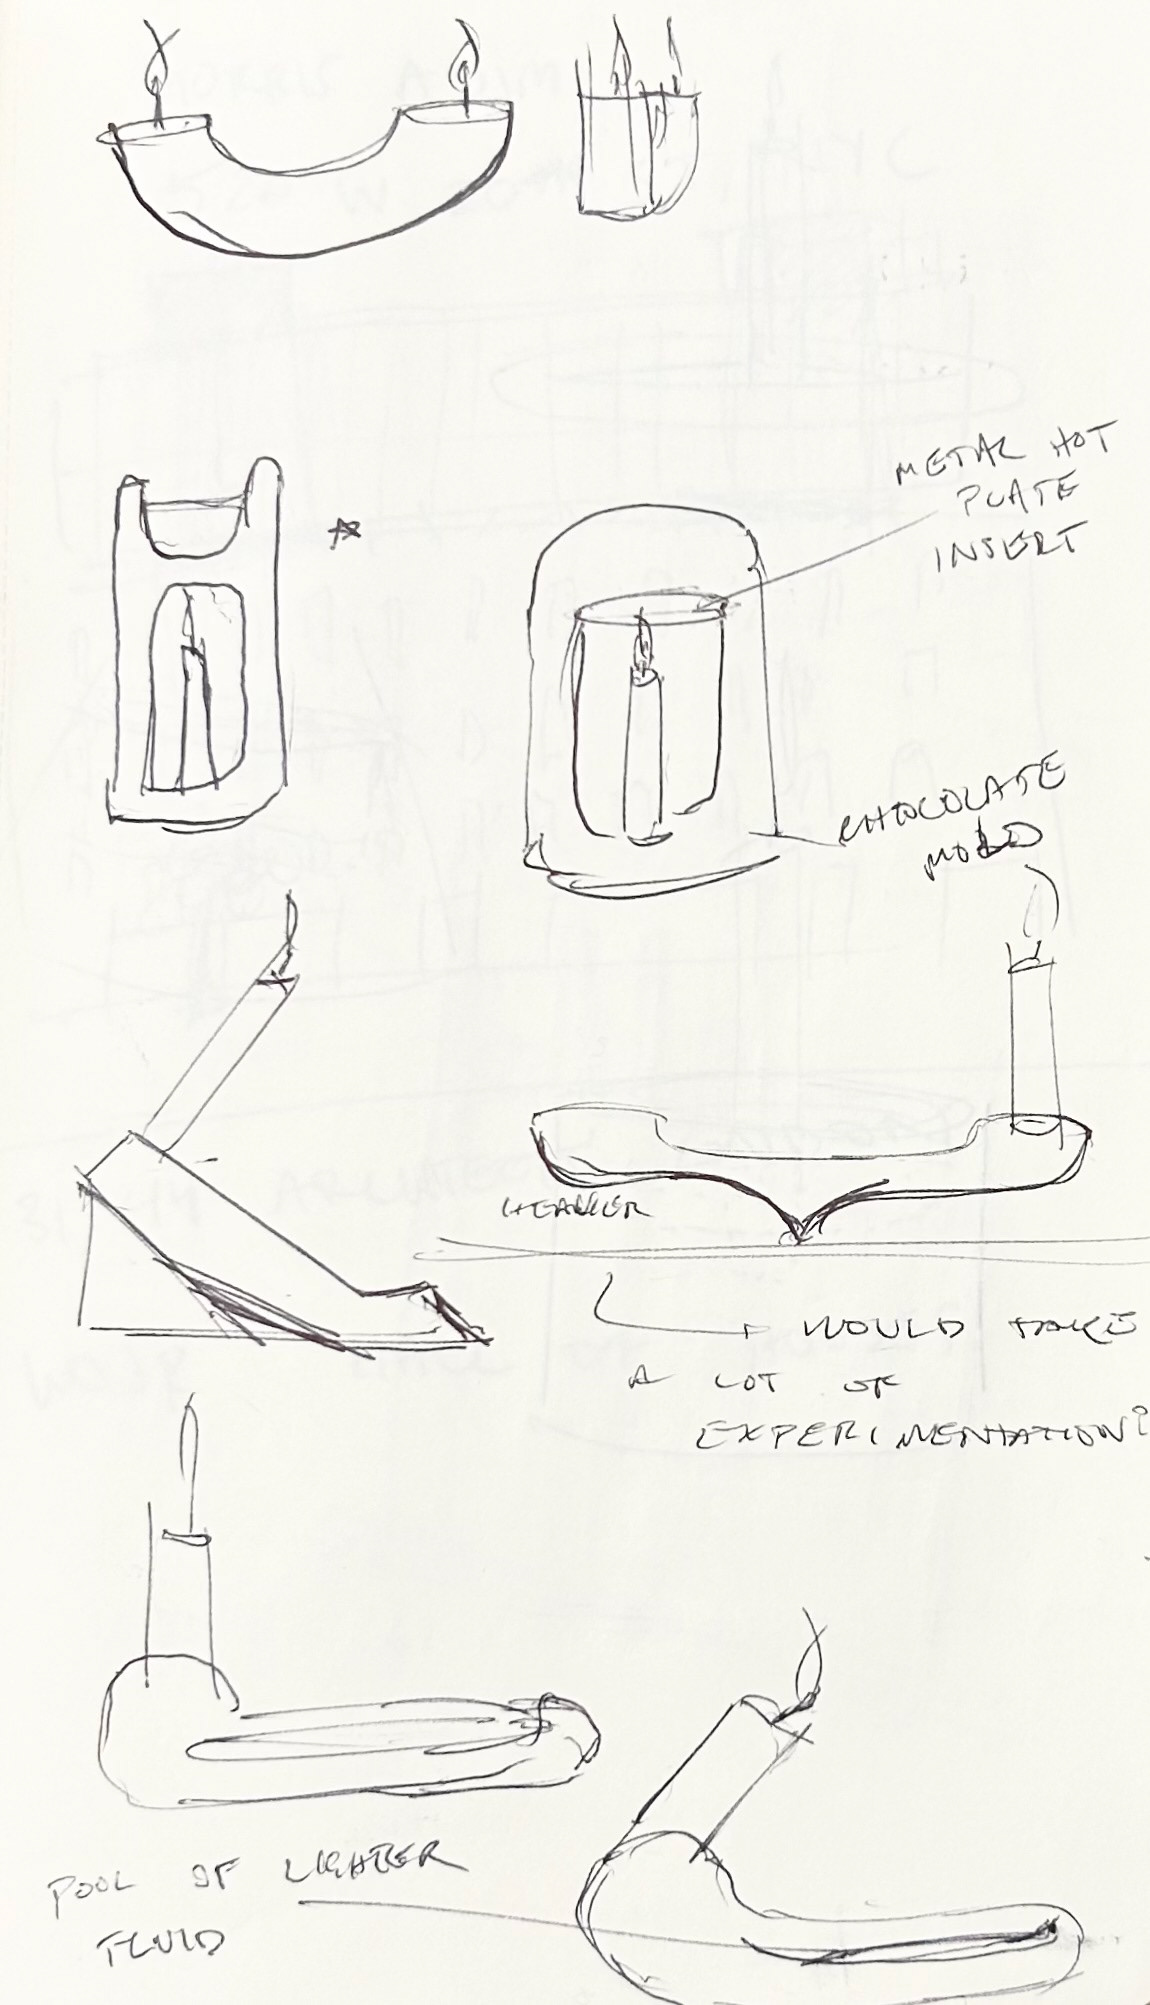 METAL HOT
PLATE
INSERT
CHOCOLATE
MOLD
HEAVIER
WOULD TAKE
A LOT OF
EXPERIMENTATION?
POOL OF LIGHTER
FLUID